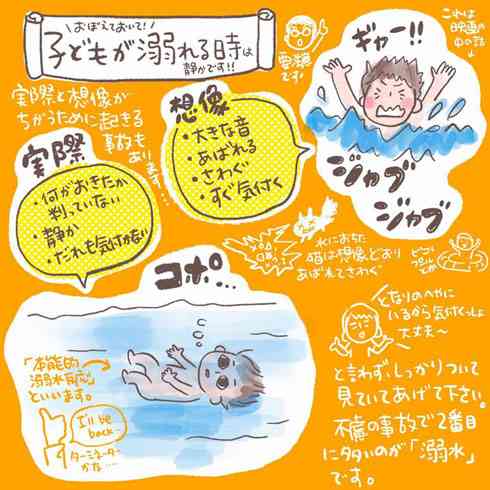 おぼえておいて!
子どもが溺れる時は
静かです!!
要注意
です!
これは
映画の
中の話
ギャー!!
実際と想像が
ちがうために起きる
事故も
あります…
想像
・大きな音
・あばれる
・さわぐ
・すぐ気付く
実際
・何がおきたか
判っていない
・静か
・だれも気付かない
ジャブ
ジャブ
水におちた
猫は想像どおり
あばれてさわぐ
ビニール
プールでも
コポ…
「本能的
溺水反応」
といいます。
I'll be
back…
ターミネーター
かな…
となりのへやに
いるから気付くっしょ
大丈夫〜
と言わず、しっかりついて
見ていてあげて下さい。
不慮の事故で2番目
に多いのが「溺水」
です。